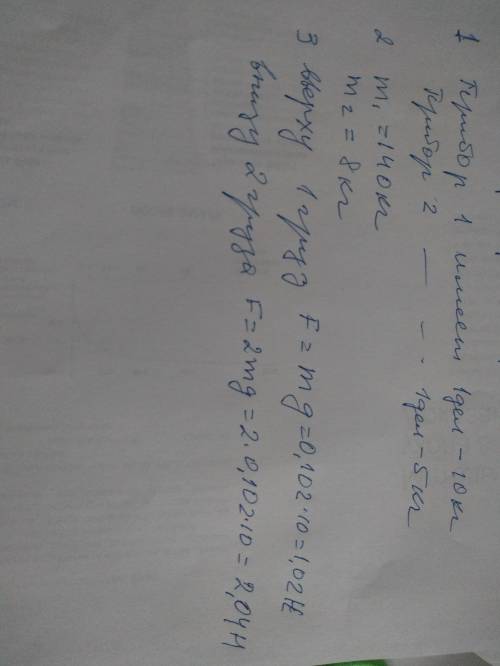 1 Прибор 1 имеет 1 дел – 10 кг
Прибор 2 — – - 1 дел – 5 кг
2 m₁ = 140 кг
m₂ = 8 кг
3 вверху 1 груз F = mg = 0,102·10 = 1,02 Н
внизу 2 груза F = 2mg = 2·0,102·10 = 2,04 Н